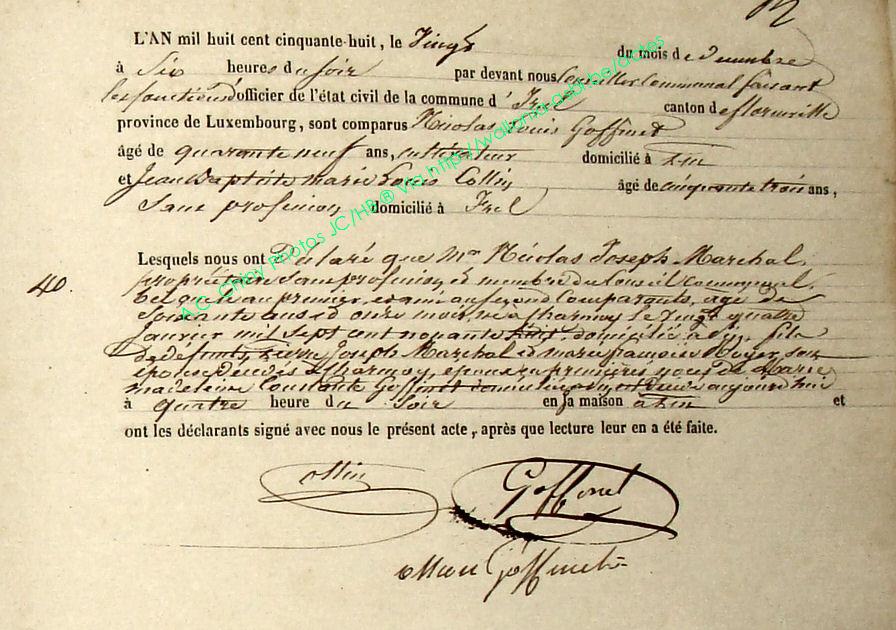 L'AN mil huit cent cinquante-huit, le Vingt du mois de Decembre
à Six heures du soir par devant nous Conseiller Communal faisant
les fonctions d'officier de l'état civil de la commune d' Izel canton de florenville
province de Luxembourg, sont comparus Nicolas Louis Goffinet
âgé de quarante neuf ans, cultivateur domicilié à
et Jean Baptiste marie Louis Collin âgé de cinquante trois ans,
Sans profession domicilié à Izel
Lesquels nous ont Déclaré que Mr Nicolas Joseph Marchal,
40. propriétaire sans profession et membre du Conseil communal,
bel au premier, et ami au second Comparants, agé de
Soixante ans et onze mois, né a Charmoy le vingt quatre
Janvier mil sept cent nonante huit, domicilié à fils
de défunts Pierre Joseph Marchal et marie françoise
époux décédés a Charmoy, époux en premières noces de Marie
madeleine Constante Goffinet aujourd'hui
à quatre heure du Soir en sa maison à et
ont les déclarants signé avec nous le présent acte, après que lecture leur en a été faite.
Collin Goffinet
Goffinet
AC Chiny Photos JC/HB® via http://wallonica.asbl.he/actes